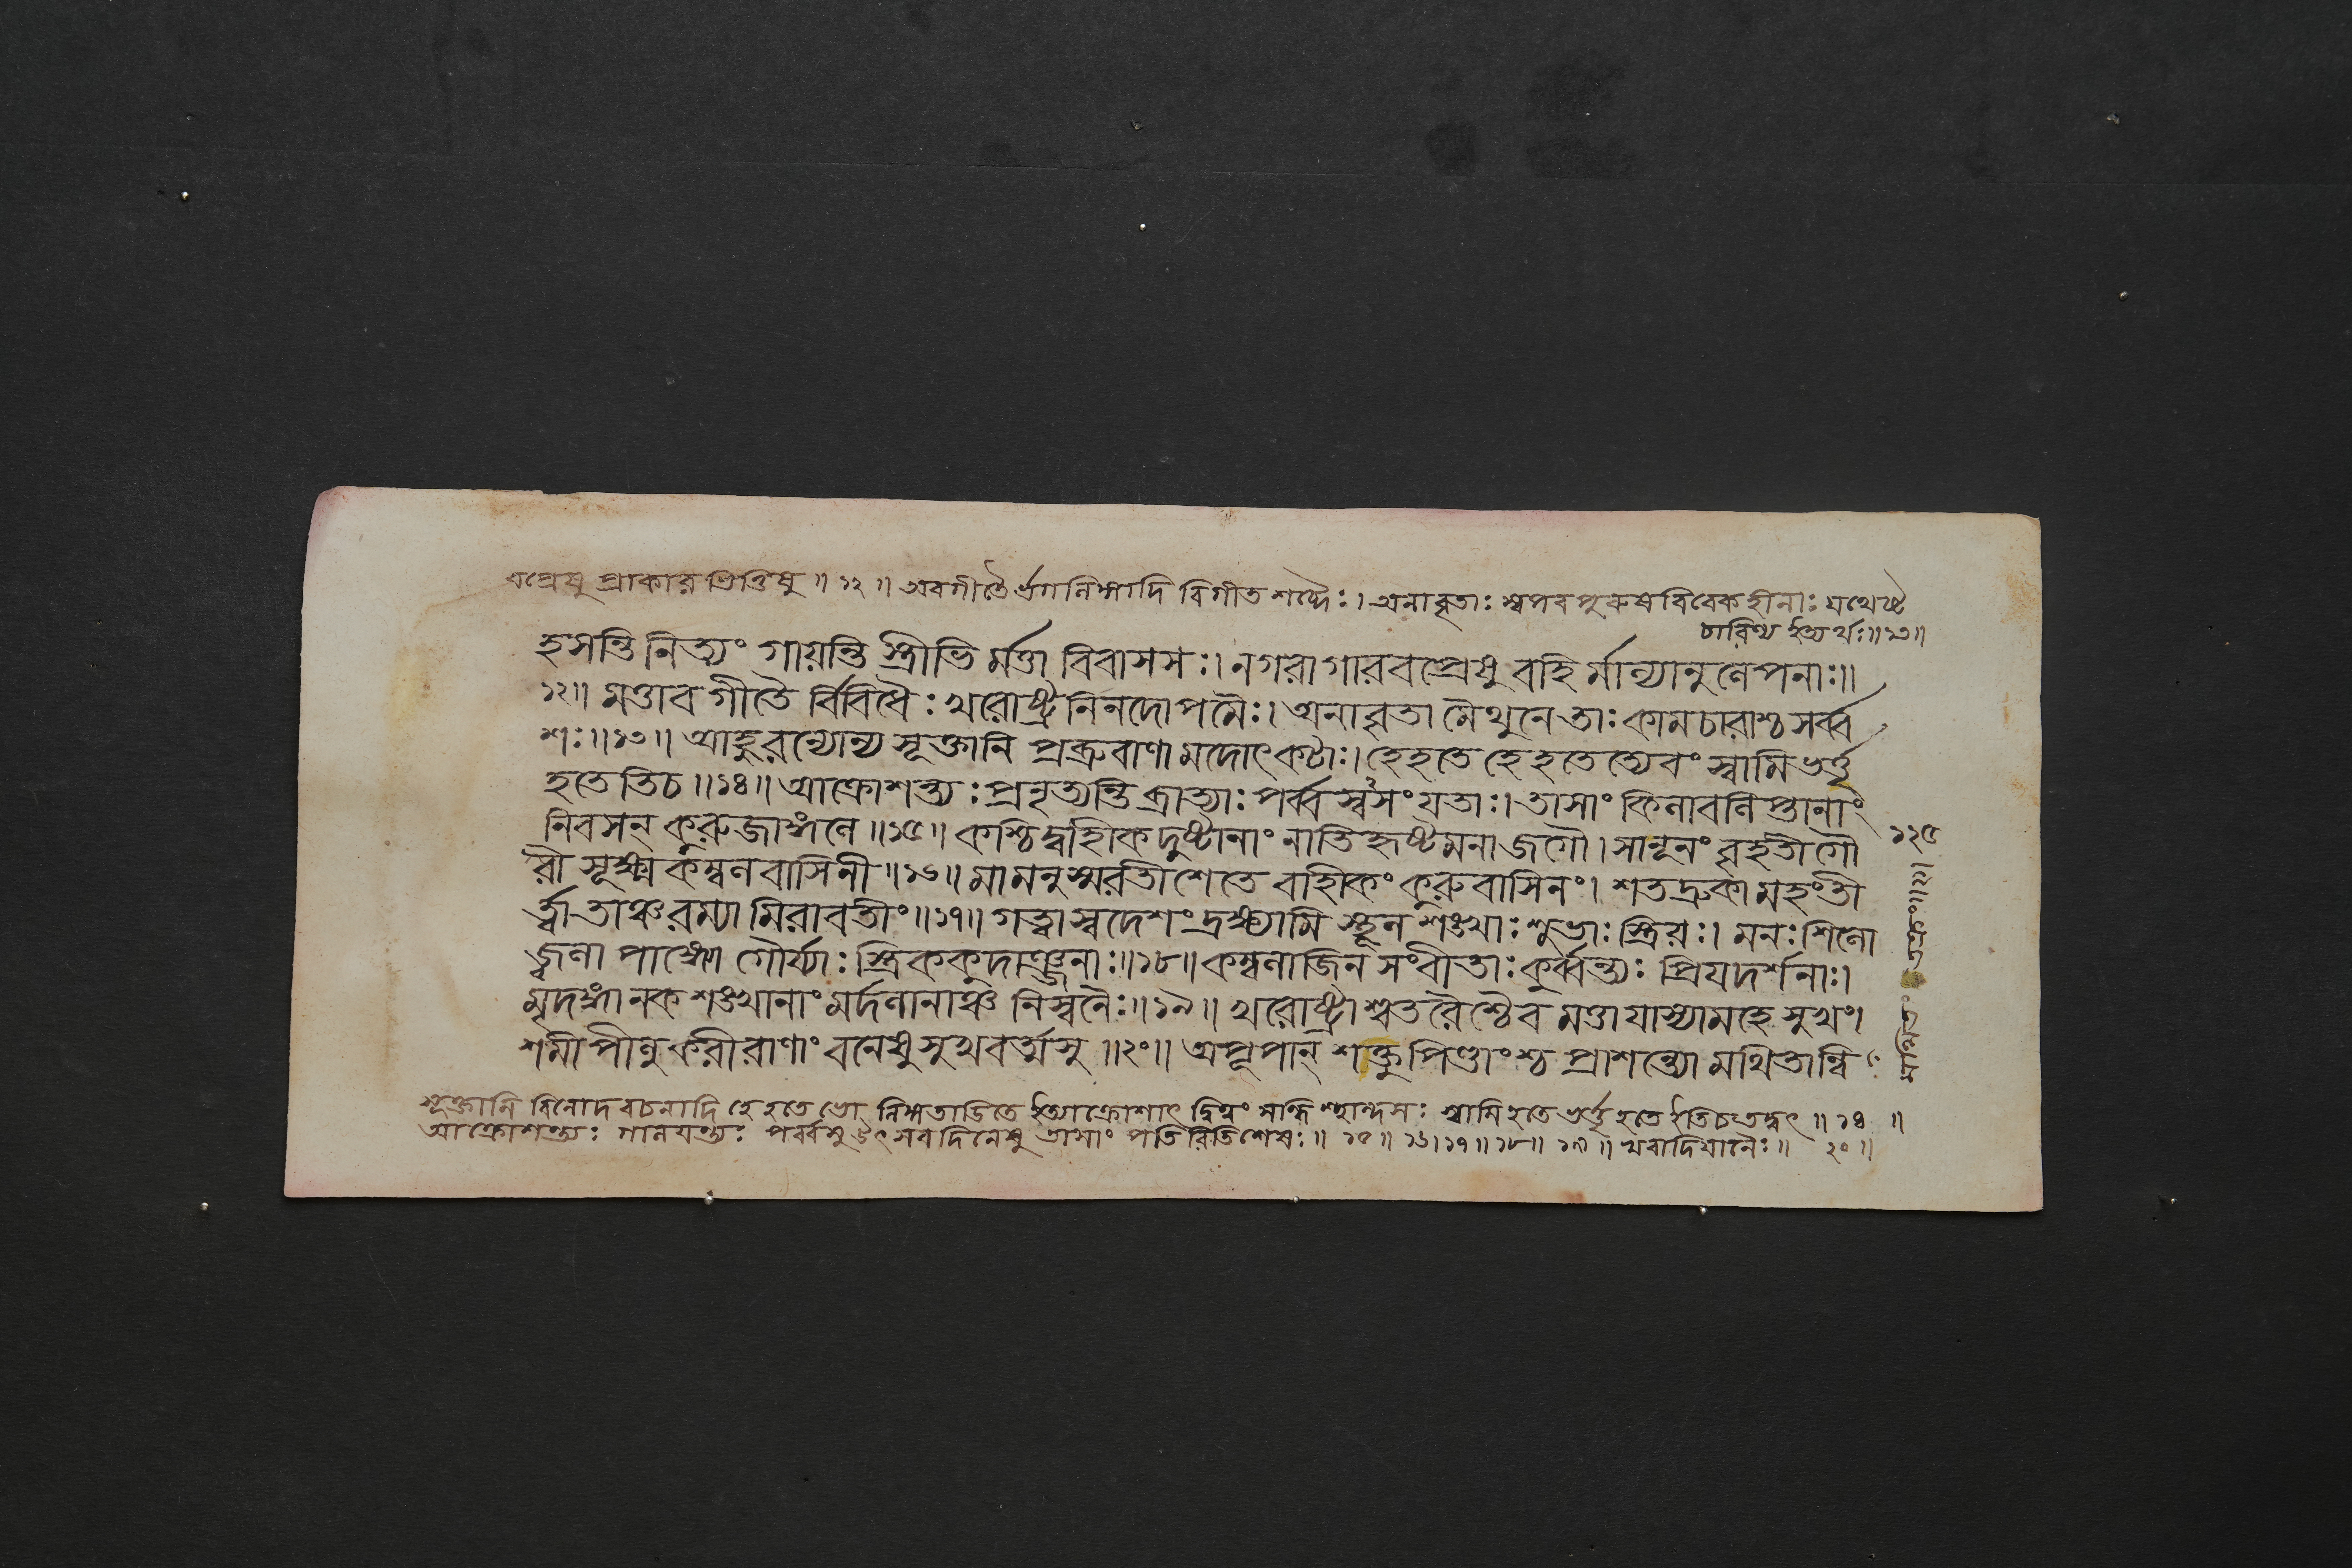 বপ্রেষু প্রাকারভিত্তিষু ॥ ১২ ॥ অবগীতৈর্ভগলিঙ্গাদি বিগীতশব্দৈঃ। অনাবৃতাঃ স্বপরপুরুষবিবেকহীনাঃ যথেষ্ট
চারিণ্য ইত্যর্থঃ॥১৩॥
হসন্তি নিত্যং গায়ন্তি স্ত্রীভি র্মত্তা বিবাসসঃ। নগরাগারবপ্রেষু বহি র্মাল্যানুলেপনাঃ॥
১২॥ মত্তাবগীতৈ র্বিবিধৈঃ খরোষ্ট্রনিনদোপমৈঃ। অনাবৃতা মৈথুনে তাঃ কামচারাশ্চ সর্ব্ব
শঃ॥১৩॥ আহুরন্যোন্য সূক্তানি প্রব্রুবাণা মদোৎকটাঃ। হেহতে হেহতেত্যেবং স্বামিভর্ত্তৃ
হতেতিচ॥১৪॥ আক্রোশন্ত্যঃ প্রনৃত্যন্তি ব্রাত্যাঃ পর্ব্বস্বসংযতাঃ। তাসাং কিলাবলিপ্তানাং
নিবসন্ কুরুজাঙ্গলে॥১৫॥ কশ্চিদ্বাহ্লিকদুষ্টানাং নাতিহৃষ্টমনা জগৌ। সানূনং বৃহতী গৌ
রী সূক্ষ্মকম্বলবাসিনী॥১৬॥ মামনুস্মরতী শেতে বাহ্লিকং কুরুবাসিনং। শতদ্রুকামহংতী
র্ত্বা তাঞ্চ রম্যামিরাবতীং॥১৭॥ গত্বা স্বদেশং দ্রক্ষ্যামি স্থূলশঙ্খাঃ শুভাঃ স্ত্রিয়ঃ। মনঃশিলো
জ্জ্বলাপাঙ্গ্যো গৌর্য্যাঃ স্ত্রিককুদাঞ্জনাঃ॥১৮॥ কম্বলাজিনসংবীতাঃ কুর্ব্বন্ত্যঃ প্রিয়দর্শনাঃ।
মৃদঙ্গানকশঙ্খানাং মর্দলানাঞ্চ নিস্বনৈঃ॥১৯॥ খরোষ্ট্রাশ্বতরৈশ্চৈব মত্তা যাস্যামহে সুখং।
শমীপীলুকরীরাণাং বনেষু সুখবর্ত্মসু॥২০॥ অপূপান্ শক্তুপিণ্ডাংশ্চ প্রাশন্ত্যো মথিতান্বি
১২৫
সূক্তানি বিনোদবচনাদি হেহতে ভো লিঙ্গতাড়িতে ইত্যাক্রোশাৎ স্বামিহতে ভর্ত্তৃহতে ইতিচতদ্বৎ॥ ১৪ ॥
আক্রোশন্ত্যঃ গানযন্ত্যঃ পর্ব্বসু উৎসবদিনেষু তাসাং পতিরিতিশেষঃ॥ ১৫॥ ১৬। ১৭॥ ১৮॥ ১৯॥ খরাদিযানৈঃ॥ ২০॥